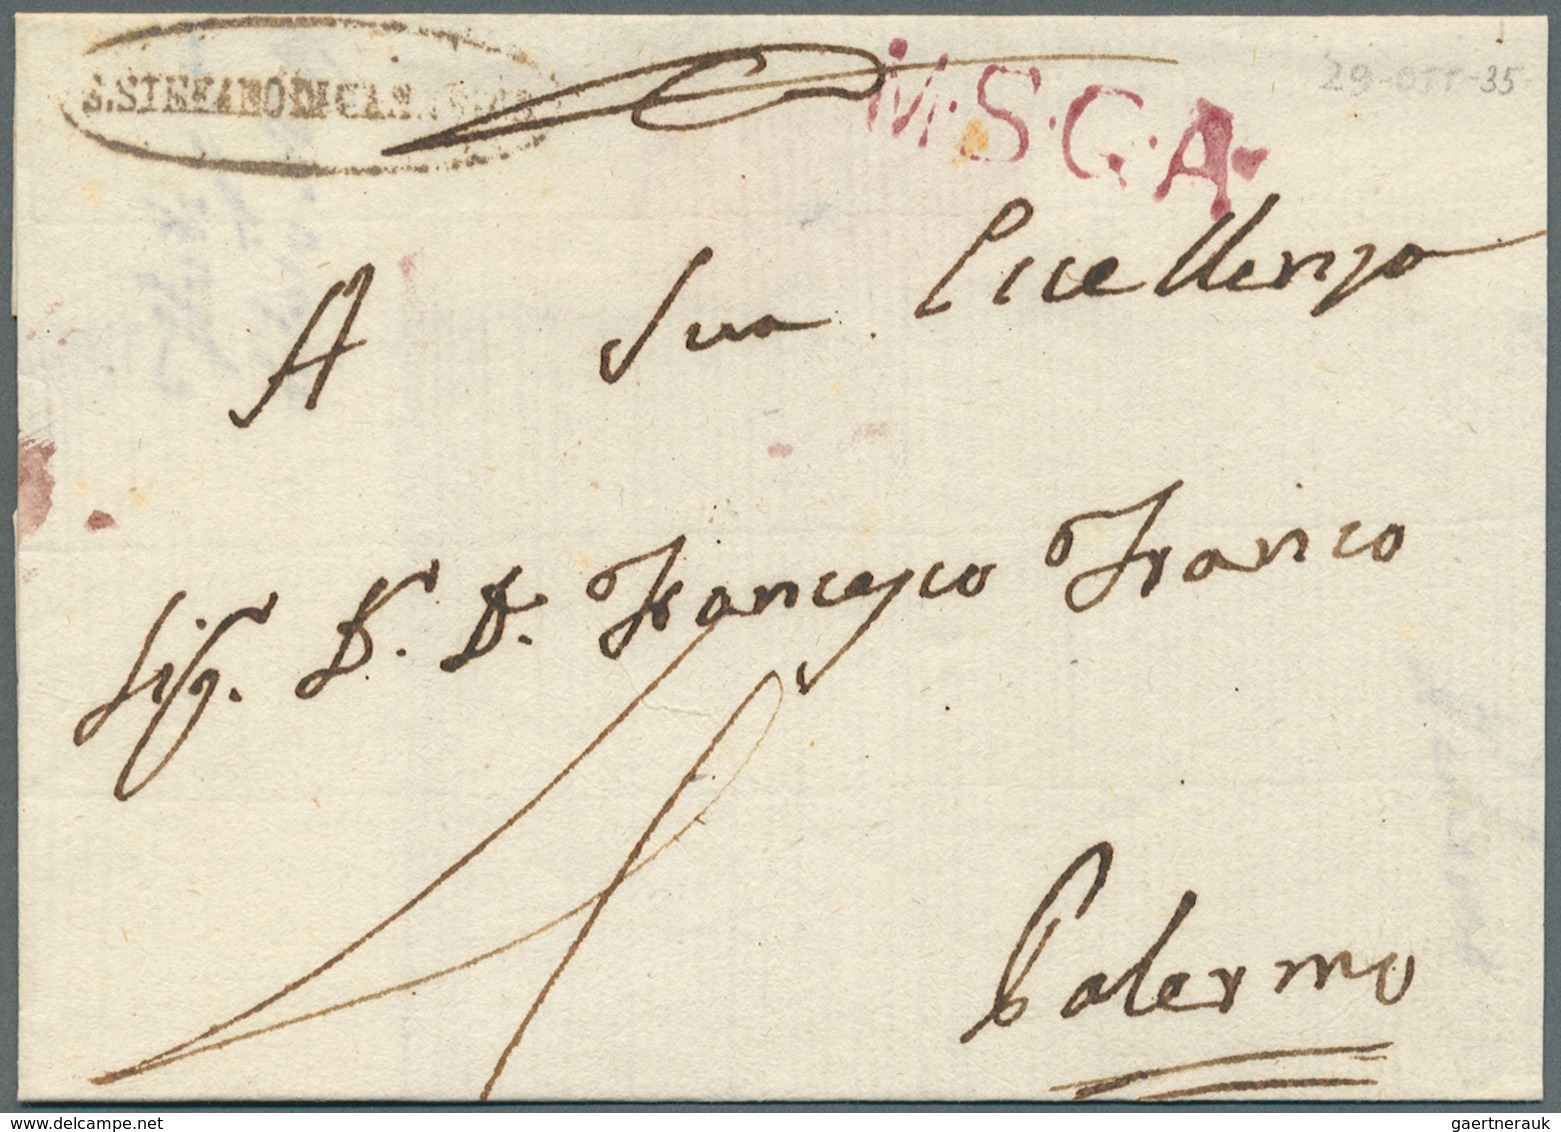 M.S.G.A.
29-OTT-35
A Sua Eccellenza
Sig. D. D. Francesco Franco
Palermo
delcampe.net
gaertnerauk